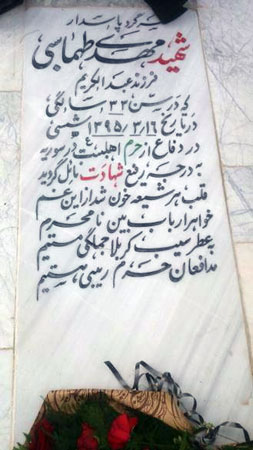 گرد پاسدار
شهید مهدی طهماسبی
فرزند عبدالکریم
که در سن ۳۳ سالگی
در تاریخ ۱۳۹۵/۳/۱۶ شمسی
در دفاع از حرم اهلبیت ع در سوریه
به درجه رفیع شهادت نائل گردید
قلب هر شیعه خون شد از این غم
خواهر ارباب بین نامحرم
به عطر سیب کربلا جملگی مستیم
مدافعان حرم زینبی هستیم